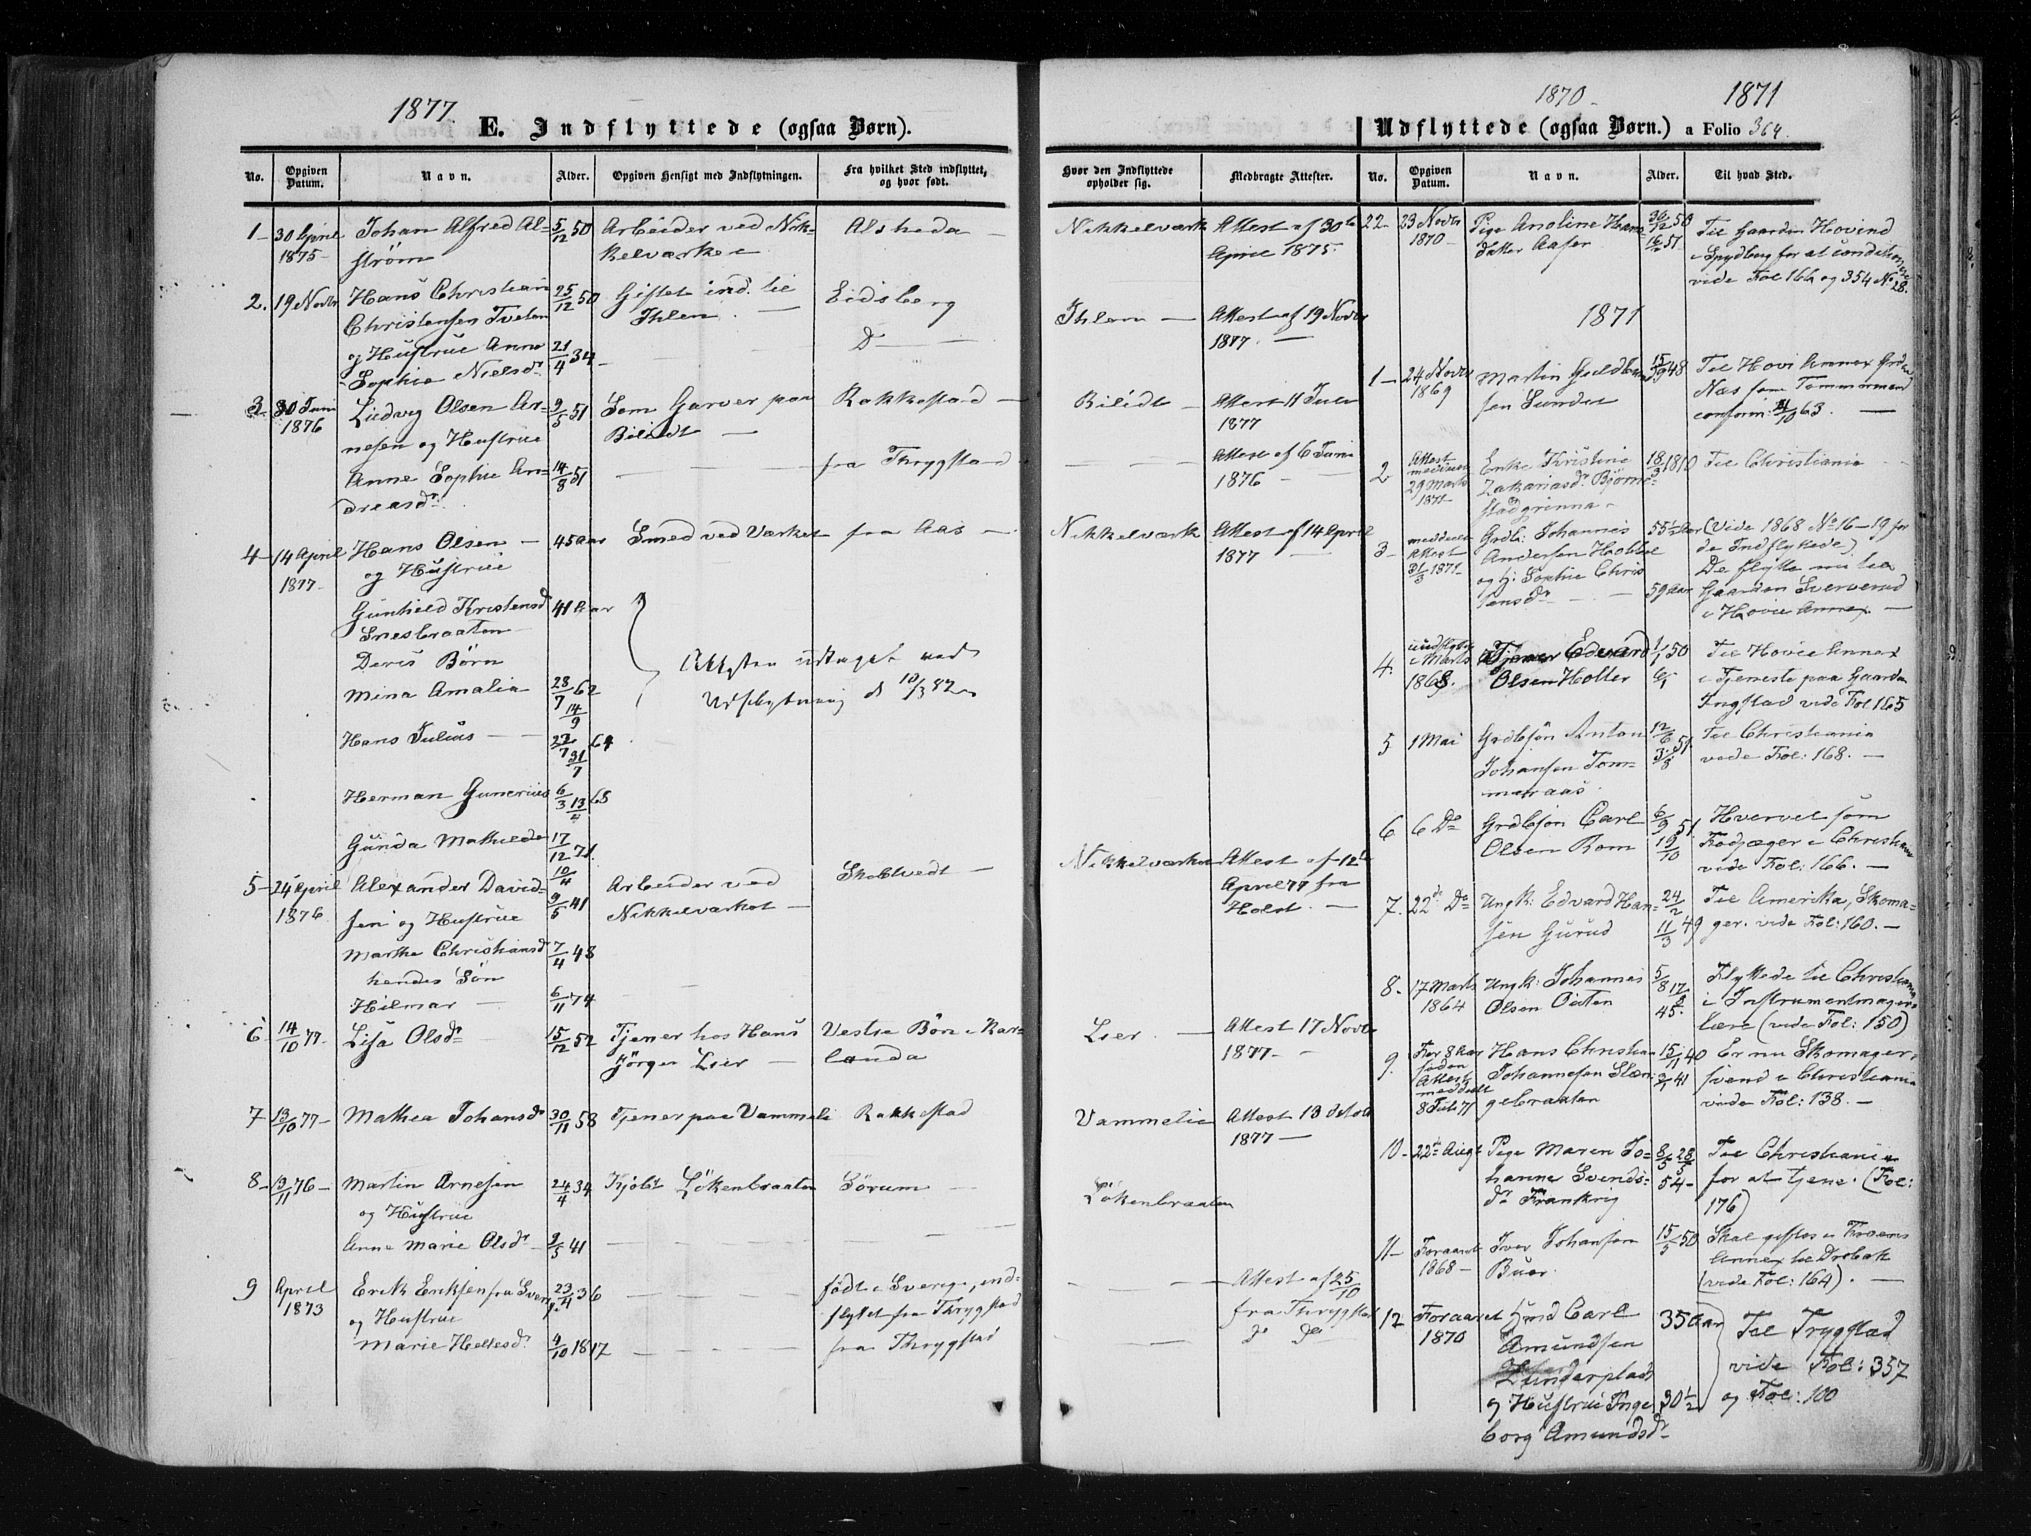 1877.
E. Indflyttede (ogsaa Børn).
No. Opgiven Datum. Navn. Alder. Opgiven Hensigt med Indflytningen. Fra hvilket Sted indflyttet, og hvor født.
1 - 30 April Johan Alfred Al- 5/12 50 Arbeider ved Nik- Alsheda -
1875 - strøm kelværket
2. 19 Novbr Hans Christian 25/12 50 Giftet ind til Eidsberg
Christensen Tveten Ihlen. -
og Hustrue Anne 21/4 34 - D -
Sophie Nielsdr
3. 30 Juni Ludvig Olsen Ar- 9/5 51 Som Garver paa Rakkestad -
1876 nesen og Hustrue Bilidt -
Anne Sophie An- 14/8 51 - fra Thrygstad
dreasdr
4 - 14 April Hans Olsen - 45 Aar Smed ved Værket fra Aas -
1877 - og Hustrue
Gunhild Kristensd 41 Aar
Snesbraaten
Deres Børn
Mina Amalia 28/7 62 14/9
Attesten udtaget ved
Udflytning d 10/3 82
Hans Julius - 22/7 64 31/7
Herman Gunerius 6/3 13/4 68
Gunda Mathilde 17/12 71 10/4
5 - 24 April Alexander David- 9/5 41 Arbeider ved Skobtvedt -
1876 sen og Hustrue Nikkelværket -
Marthe Christiansdr 7/4 48
hendes Søn
Hilmar - 6/11 74
6 14/10 77 - Lisa Olsdr 15/12 52 Tjener hos Hans Vestre Bön i Kar-
Jørgen Lier - landa
7 13/10 77 - Mathea Johansdr 30/11 58 Tjener paa Vammeli Rakkestad
8 - 13/11 76 - Martin Arnesen 24/4 34 Kjøbt Løkenbraaten Sørum -
og Hustrue
Anne Marie Olsdr 9/5 41
9 April Erik Eriksen fra Sverg. 23/4 36 født i Sverige, ind-
1873 og Hustrue flyttet fra Thrygstad
Marie Heltesdr. 4/10 1817 fra Thrygstad
Hvor den Indflyttede opholder sig. Medbragte Attester.
Nikkelværk Attest af 30te
April 1875.
Ihlen - Attest af 19 Novbr
1877. -
Bilidt - Attest 11 Juli
1877
Attest af 6 Juni
1876 -
Nikkelværk Attest af 14 April
1877 -
Nikkelværket Attest af 12te
April 77 fra
Holst. -
Lier - Attest 17 Novbr
1877 -
Vammelie Attest 13 Octob
1877 -
Løkenbraaten
Attest af 25/10
fra Thrygstad
do do
1870 - 1871
Udflyttede (ogsaa Børn.) a Folio 364.
No. Opgiven Datum. Navn. Alder. Til hvad Sted.
22 - 23 Novbr Pige Anoline Hans- 50 Til Gaarden Hovind
1870 - datter Aasen 57 i Spydberg for at conditionere
vide Fol 166 og 354 No 28.
1871
1 - 24 Novbr Martin Guldbrand 15/9 48 Til Hovi Annex
1869 sen Sundet Næs som Tømmermand
conform: 63. -
2 Attest meddeelt 29 Marts 1871 - Enke Kristine 18/3 1810 Til Christiania -
Zakariasdr. Bjørn-
stadgrinna -
3 - meddeelt Attest 31/3 1871 - Grdb: Johannes 55 1/2 Aar (Vide 1868 No 16 - 19 for
Andersen Hobbel de Indflyttede)
og H: Sophie Chris De flytte nu til
tensdr - 59 Aar Gaarden Sververud
i Hovie Annex -
4. udflyttet i Marts 1868. Tjener Edvard 1/1 50 Til Hovie Annex
Olsen Holter i Tjeneste paa Gaarden
Ingstad vide Fol 165
5 1 Mai Grdbsøn Anton 12/6 51 Til Christiania
Johansen Tom- 3/8 vide Fol: 168. -
meraas.
6 6 Do Grdbsøn Carl 6/9 51 Hvervet som
Olsen Rom 19/10 Fodjæger i Christiania
vide Fol: 166. -
7. 22de Do Ungk: Edvard Han- 24/2 49 Til Amerika, Skoma-
sen Gurud 11/3 ger. vide Fol: 160. -
8 - 17 Marts Ungk: Johannes 5/8 Flyttede til Christiania
1864 Olsen 45. i Instrumentmager-
lære (vide Fol: 150)
9. For 8 Aar siden Attest meddelt 8 Juli 71 Hans Christian 15/11 40 Er nu Skomager-
Johannesen Slæn- 3/1 41 svend i Christiania
gebraaten vide Fol: 138. -
10 - 22de Augt Pige Maren Jo- 8/5 28/5 Til Christiania
hanne Svends- 54 - for at tjene. (Fol:
dr Frankrig 176)
11 - Foraaret Iver Johansen 15/5 50 Skal giftes i Kroens
1868 - Buer. Annex til Drøbak
(vide Fol: 164). -
12 Foraaret Hmd Carl 35 Aar Til Trygstad
1870 Amundsen vide Fol: 357
Lunderplads og Fol: 100
og Hustrue Inge 30 1/2
borg Amundsdr